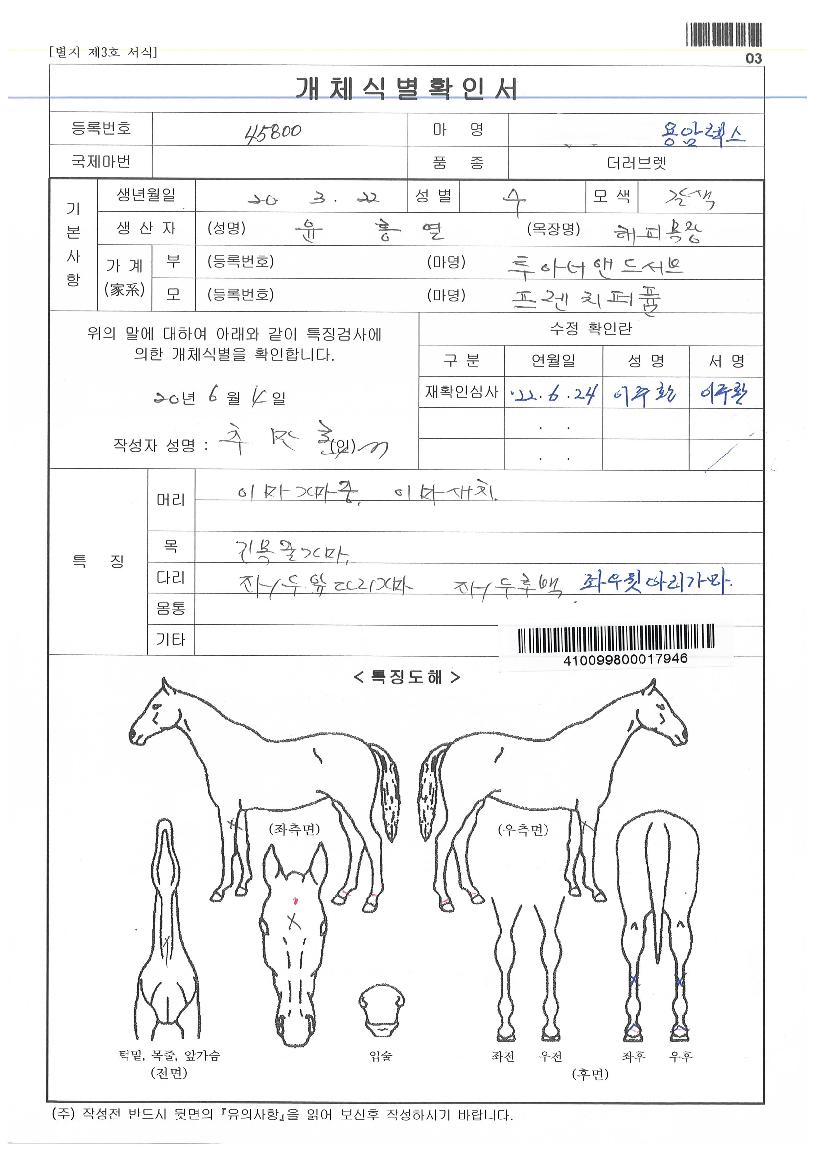 [별지 제3호 서식]
03
개체식별확인서
등록번호 45800 마 명 용암렉스
국제마번 품 종 더러브렛
기본사항
생년월일 20 3. 22 성 별 수 모 색 갈색
생 산 자 (성명) 윤흥열 (목장명) 해피목장
가 계 (家系) 부 (등록번호) (마명) 투아너앤드서브
모 (등록번호) (마명) 프렌치퍼퓸
위의 말에 대하여 아래와 같이 특징검사에
의한 개체식별을 확인합니다.
20년 6월 4일
작성자 성명 : (인)
수정 확인란
구 분 연월일 성 명 서 명
재확인심사 '22. 6. 24 이주환 이주환
. .
. .
특 징
머리 이마가마중, 이마새치.
목 기목줄가마,
다리 좌우두앞띠가마 좌우두후백, 좌우뒷아리가마.
몸통
기타
410099800017946
< 특징도해 >
(좌측면) (우측면)
턱밑, 목줄, 앞가슴
(전면)
입술
좌전 우전 좌후 우후
(후면)
(주) 작성전 반드시 뒷면의 『유의사항』을 읽어 보신후 작성하시기 바랍니다.